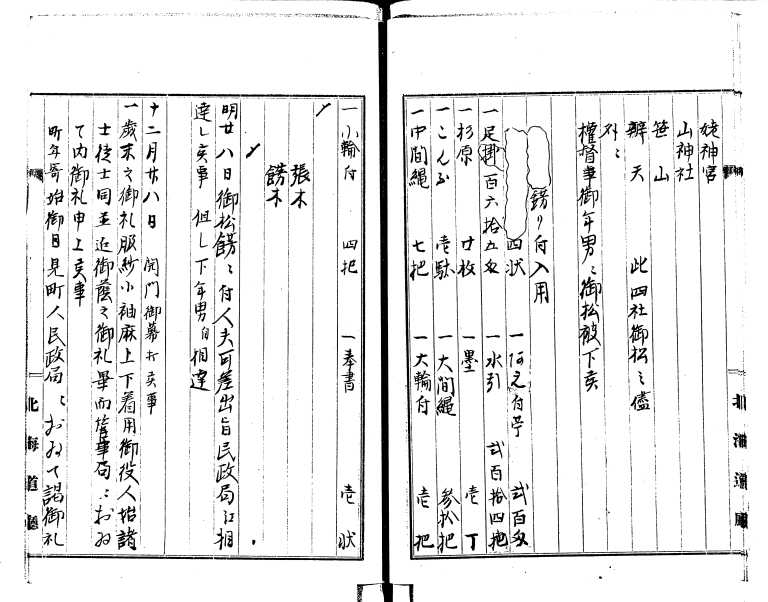 姥神宮
山神社
笹山
辨天 此四社御松ニ儘
外ニ
權督事御年男ニ御松被下亥
錺り付入用
四状 一 付 弐百
一足 百六拾五 一水引 弐百拾四把
一杉原 廿枚 一墨 壱丁
一こんぶ 壱駄 一大間縄 参拾把
一中間縄 七把 一大輪付 壱把
一小輪付 四把 一奉書 壱状
張木
錺木
明廿八日御松錺ニ付人夫可差出旨民政局江相
達し亥事 但し下年男自相達
十二月廿八日 開門御幕打亥事
一歳末之御礼服紗小袖麻上下着用御役人始諸
士徒士同並近御蔭之御礼畢而督事局ニおゐ
て内御礼申上亥事
町年寄始御目見町人民政局ニおゐて謁御礼
北海道廳
北海道廳